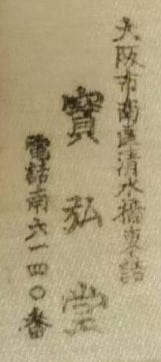 大阪市南區清水橋東詰
寳弘堂
電話南六一四〇番